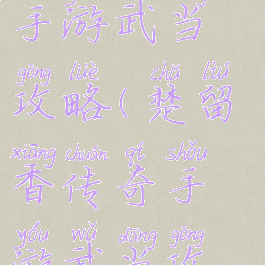 手游武当
gōng lüè chǔ liú
攻略(楚留
xiāng chuán qí shǒu
香传奇手
yóu wǔ dāng gōng
游武当攻